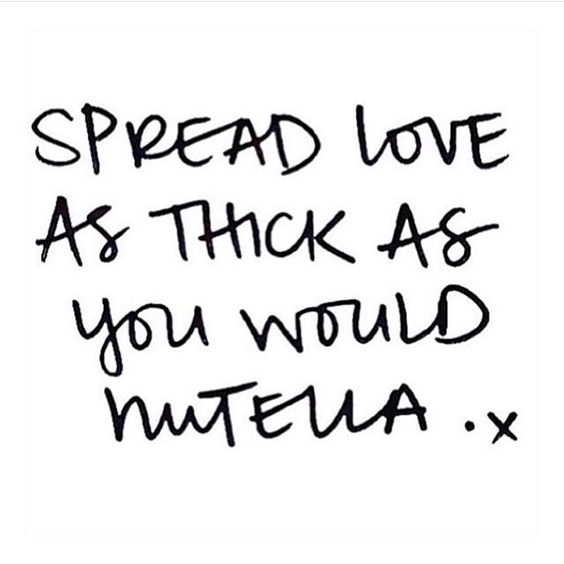 SPREAD LOVE
AS THICK AS
YOU WOULD
NUTELLA .x